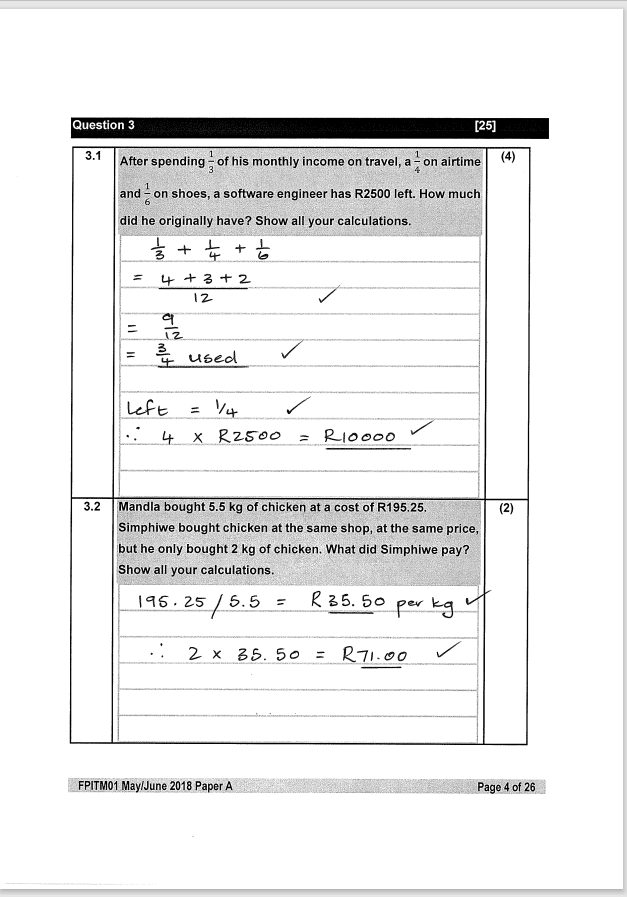 Question 3 [25]
3.1 After spending 1/3 of his monthly income on travel, a 1/4 on airtime (4)
and 1/6 on shoes, a software engineer has R2500 left. How much
did he originally have? Show all your calculations.
1/3 + 1/4 + 1/6
= 4 + 3 + 2 / 12 ✓
= 9/12
= 3/4 used ✓
Left = 1/4 ✓
∴ 4 x R2500 = R10000 ✓
3.2 Mandla bought 5.5 kg of chicken at a cost of R195.25. (2)
Simphiwe bought chicken at the same shop, at the same price,
but he only bought 2 kg of chicken. What did Simphiwe pay?
Show all your calculations.
195.25 / 5.5 = R35.50 per kg ✓
∴ 2 x 35.50 = R71.00 ✓
FPITM01 May/June 2018 Paper A Page 4 of 26